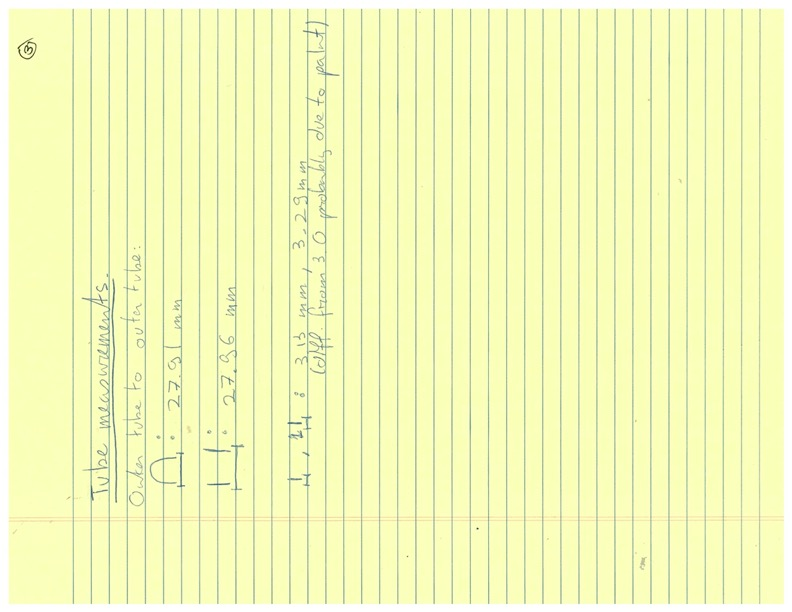 ③
Tube measurements.
Outer tube to outer tube:
: 27.91 mm
: 27.96 mm
, : 3.13 mm, 3.29 mm
(diff. from 3.0 probably due to paint)